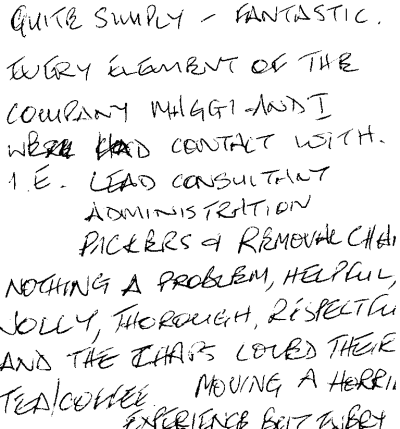 QUITE SIMPLY - FANTASTIC.
EVERY ELEMENT OF THE
COMPANY MAGGI AND I
HAD CONTACT WITH.
I.E. LEAD CONSULTANT
ADMINISTRATION
PACKERS & REMOVAL CHA
NOTHING A PROBLEM, HELPFUL,
JOLLY, THOROUGH, RESPECTFU
AND THE CHAPS LOVED THEIR
TEA/COFFEE MOVING A HORRI
EXPERIENCE BUT EVERY